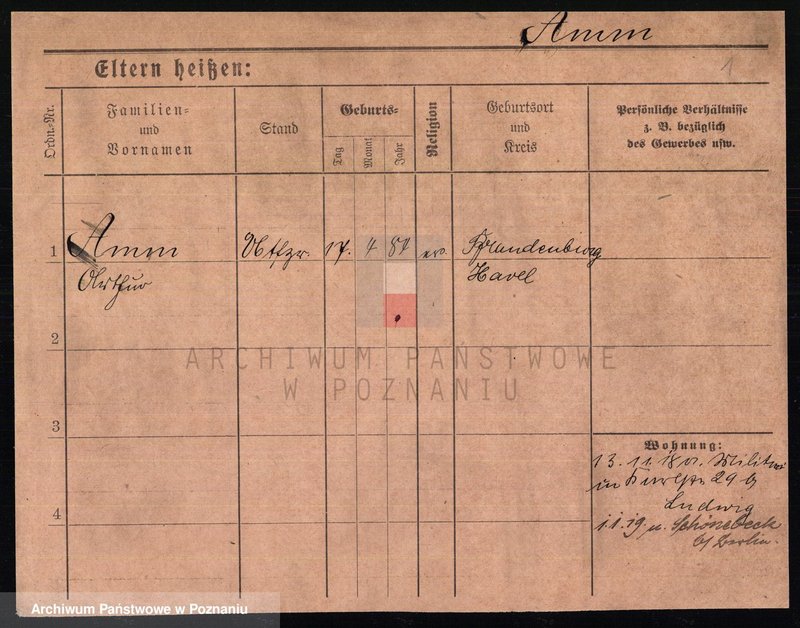 Amm
1
Eltern heißen:
Ordn.-Nr.
Familien=
und
Vornamen
Stand
Geburts=
Tag
Monat
Jahr
Religion
Geburtsort
und
Kreis
Persönliche Verhältnisse
z. B. bezüglich
des Gewerbes usw.
1 Amm 17. 4 87 ev. Brandenburg
Arthur Havel
2
ARCHIWUM PAŃSTWOWE
W POZNANIU
3
Wohnung:
13. 11. 18 v. Militär
29 b
Ludwig
4
1.1.19 n. Schönebeck
b/ Berlin.
Archiwum Państwowe w Poznaniu